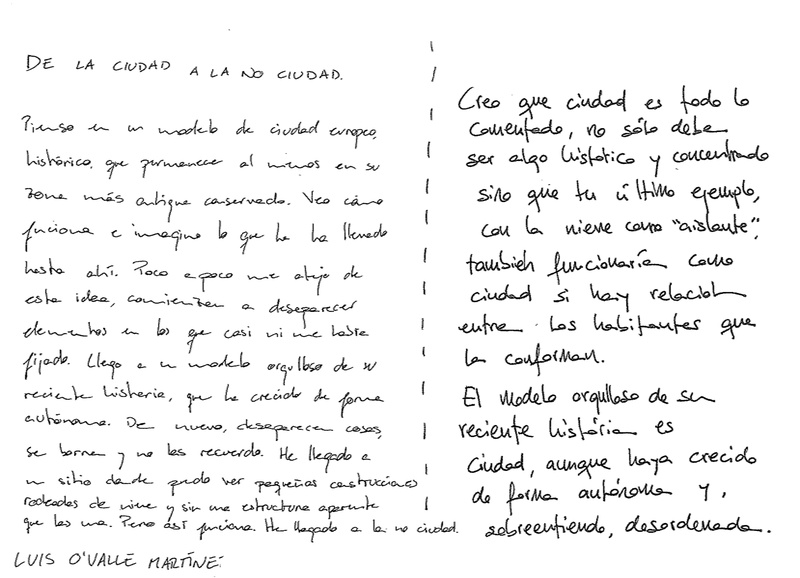 DE LA CIUDAD A LA NO CIUDAD.
Pienso en un modelo de ciudad europeo,
histórico, que permanece al menos en su
zona más antigua conservado. Veo cómo
funciona e imagino lo que le ha llevado
hasta ahí. Poco a poco me alejo de
esta idea, comienzan a desaparecer
elementos en los que casi ni me había
fijado. Llego a un modelo orgulloso de su
reciente historia, que ha crecido de forma
autónoma. De nuevo, desaparecen cosas,
se borran y no las recuerdo. He llegado a
un sitio donde puedo ver pequeñas construcciones
rodeadas de nieve y sin una estructura aparente
que las una. Pero así funciona. He llegado a la no ciudad.
LUIS O'VALLE MARTÍNEZ
Creo que ciudad es todo lo
comentado, no sólo debe
ser algo histórico y concentrado
sino que tu último ejemplo,
con la nieve como "aislante",
también funcionaría como
ciudad si hay relación
entre los habitantes que
la conforman.
El modelo orgulloso de su
reciente história es
ciudad, aunque haya crecido
de forma autónoma y,
sobreentiendo, desordenada.